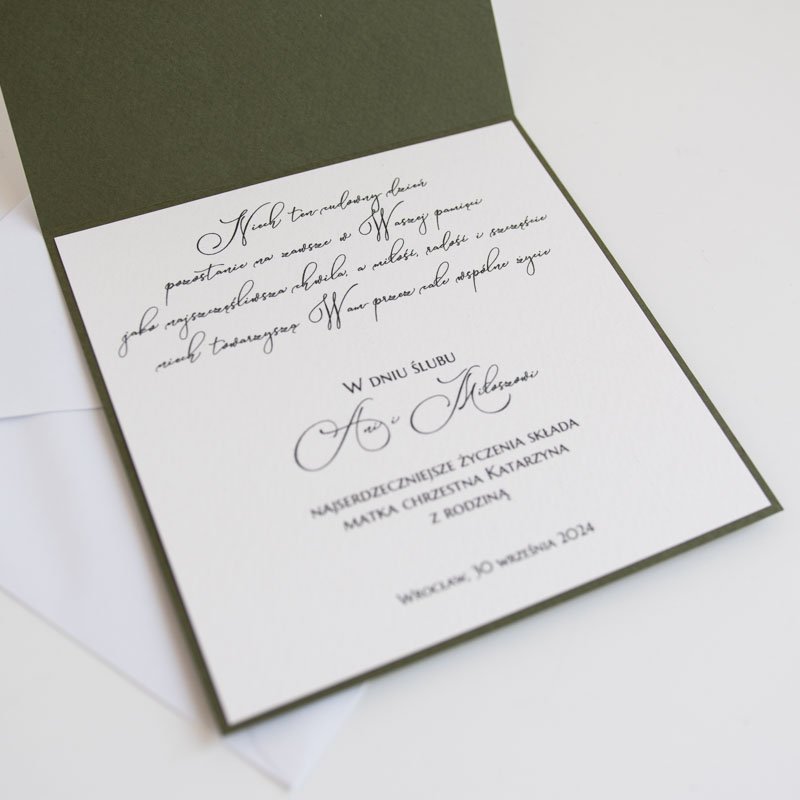 Niech ten cudowny dzień
pozostanie na zawsze w Waszej pamięci
jako najszczęśliwsza chwila, a miłość, radość i szczęście
niech towarzyszą Wam przez całe wspólne życie
W DNIU ŚLUBU
Ani i Miłoszowi
NAJSERDZECZNIEJSZE ŻYCZENIA SKŁADA
MATKA CHRZESTNA KATARZYNA
Z RODZINĄ
WROCŁAW, 30 WRZEŚNIA 2024